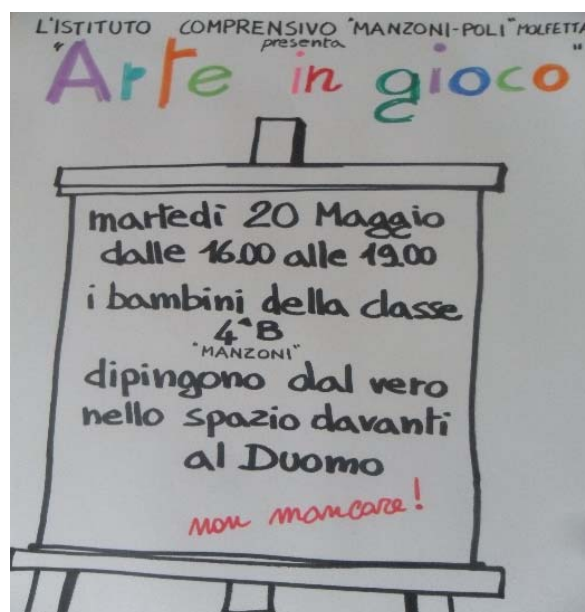 L'ISTITUTO COMPRENSIVO "MANZONI-POLI" MOLFETTA
presenta
"Arte in gioco"
martedì 20 Maggio
dalle 16.00 alle 19.00
i bambini della classe
4^B
"MANZONI"
dipingono dal vero
nello spazio davanti
al Duomo
non mancare!